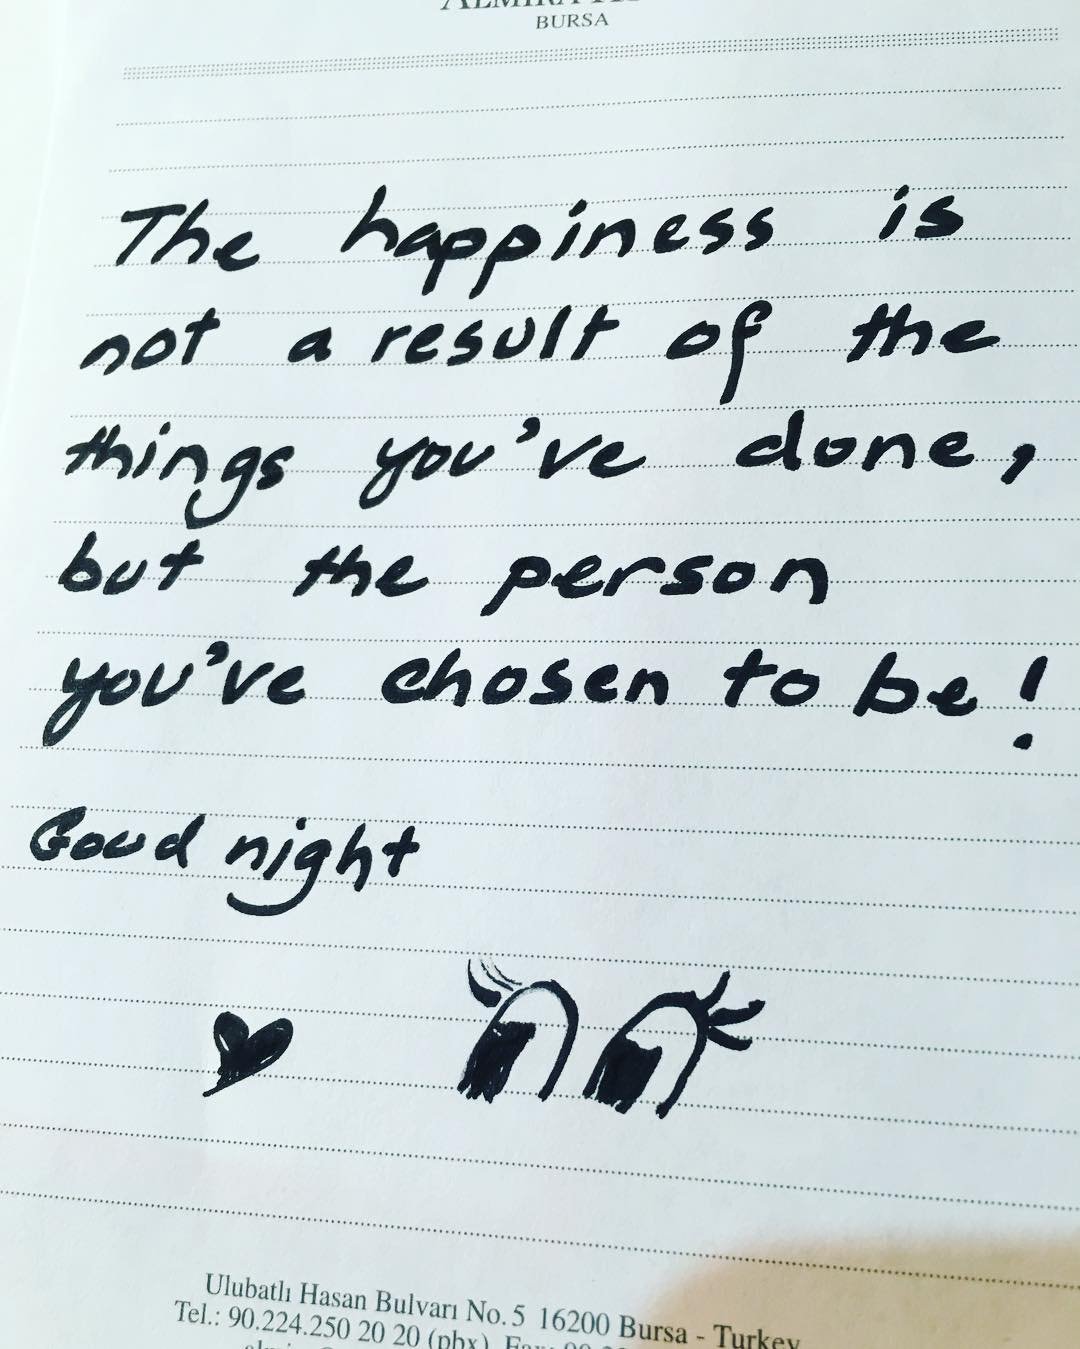 ALMIRA
BURSA
The happiness is
not a result of the
things you've done,
but the person
you've chosen to be!
Good night
Ulubatlı Hasan Bulvarı No. 5 16200 Bursa - Turkey
Tel.: 90.224.250 20 20 (pbx) Fax: 90